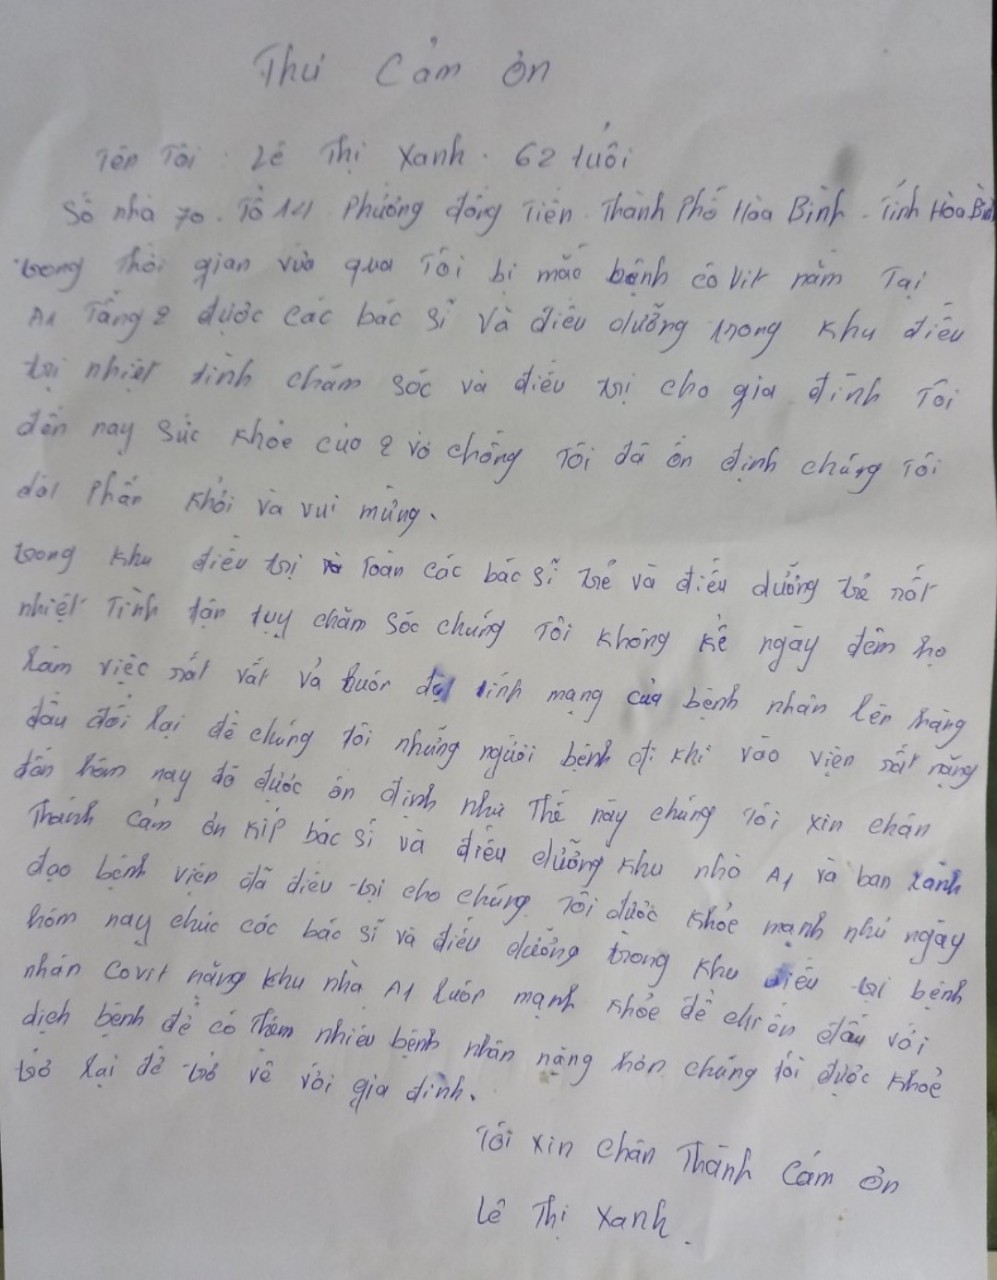 Thư Cảm ơn
Tên Tôi : Lê Thị Xanh . 62 tuổi
Số nhà 70 . Tổ 14 Phường đồng Tiến Thành Phố Hòa Bình - Tỉnh Hòa Bình
trong thời gian vừa qua Tôi bị mắc bệnh cô Vit nằm Tại
A1 Tầng 2 được các bác sĩ và điều dưỡng trong khu điều
trị nhiệt tình chăm sóc và điều trị cho gia đình Tôi
đến nay sức khỏe của 2 vợ chồng Tôi đã ổn định chúng Tôi
rất Phấn Khởi và vui mừng.
trong khu điều trị toàn các bác sĩ trẻ và điều dưỡng trẻ rất
nhiệt Tình tận tụy chăm sóc chúng Tôi không kể ngày đêm họ
làm việc rất vất vả luôn đặt tính mạng của bệnh nhân lên hàng
đầu đổi lại để chúng tôi những người bệnh đi khi vào viện rất nặng
đến hôm nay đã được ổn định như Thế này chúng Tôi xin chân
Thành cảm ơn kíp bác sĩ và điều dưỡng khu nhà A1 và ban Lãnh
đạo bệnh viện đã điều trị cho chúng Tôi được khỏe mạnh như ngày
hôm nay chúc các bác sĩ và điều dưỡng trong khu điều trị bệnh
nhân Covit nặng khu nhà A1 luôn mạnh khỏe để chiến đấu với
dịch bệnh để có Thêm nhiều bệnh nhân nặng hơn chúng tôi được khỏe
trở lại để trở về với gia đình.
Tôi xin chân Thành Cám ơn
Lê Thị Xanh.